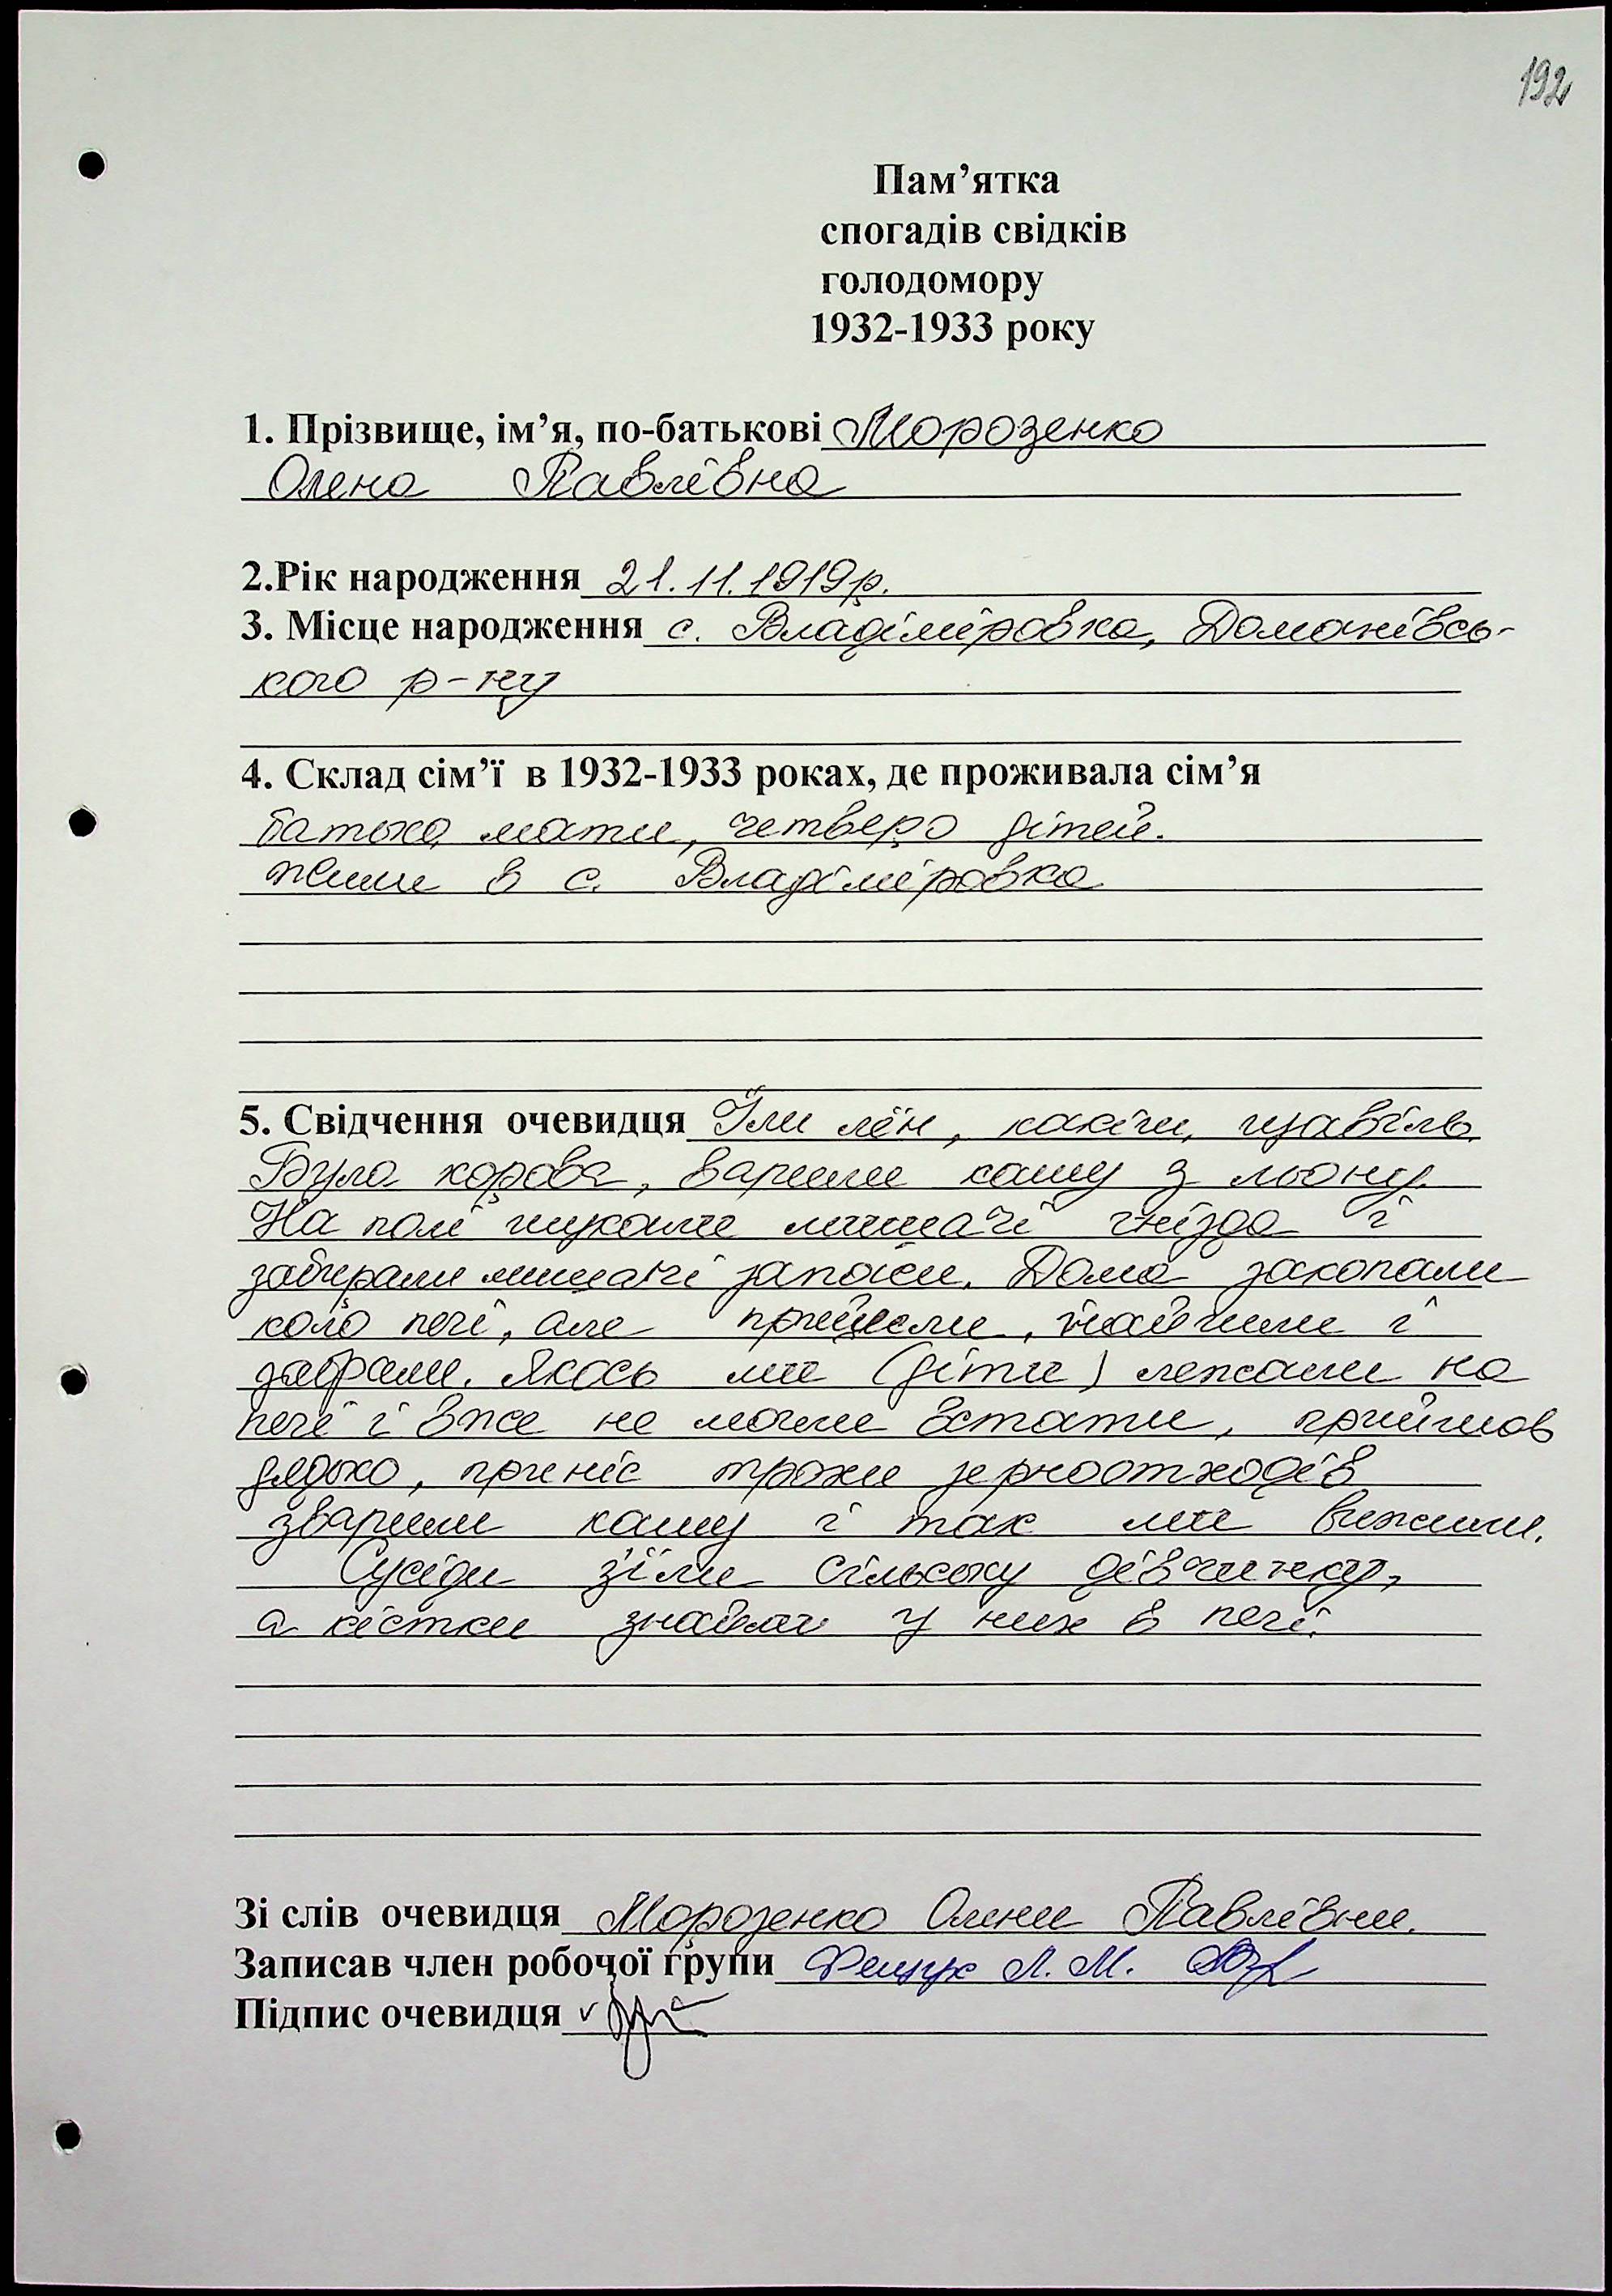 192
Пам’ятка
спогадів свідків
голодомору
1932-1933 року
1. Прізвище, ім’я, по-батькові Морозенко
Олена Павлівна
2.Рік народження 21.11.1919р.
3. Місце народження с. Владіміровка, Доманівсь-
кого р-ну
4. Склад сім’ї в 1932-1933 роках, де проживала сім’я
батько, мати, четверо дітей.
жили в с. Владіміровка
5. Свідчення очевидця Їли лін, качини, щавіль.
Була корова, варили кашу з льону.
На полі шукали мишачі гнізда і
забирали мишачі запаси. Дома закопали
коло печі, але прийшли, найшли і
забрали. Якось ми (діти) лежали на
печі і вже не могли встати, прийшов
дядько, приніс трохи зерноотходів
зварили кашу і так ми вижили.
Сусіди з'їли сільську дівчинку,
а кістки знайшли у них в печі.
Зі слів очевидця Морозенко Олени Павлівни.
Записав член робочої групи Л. М.
Підпис очевидця